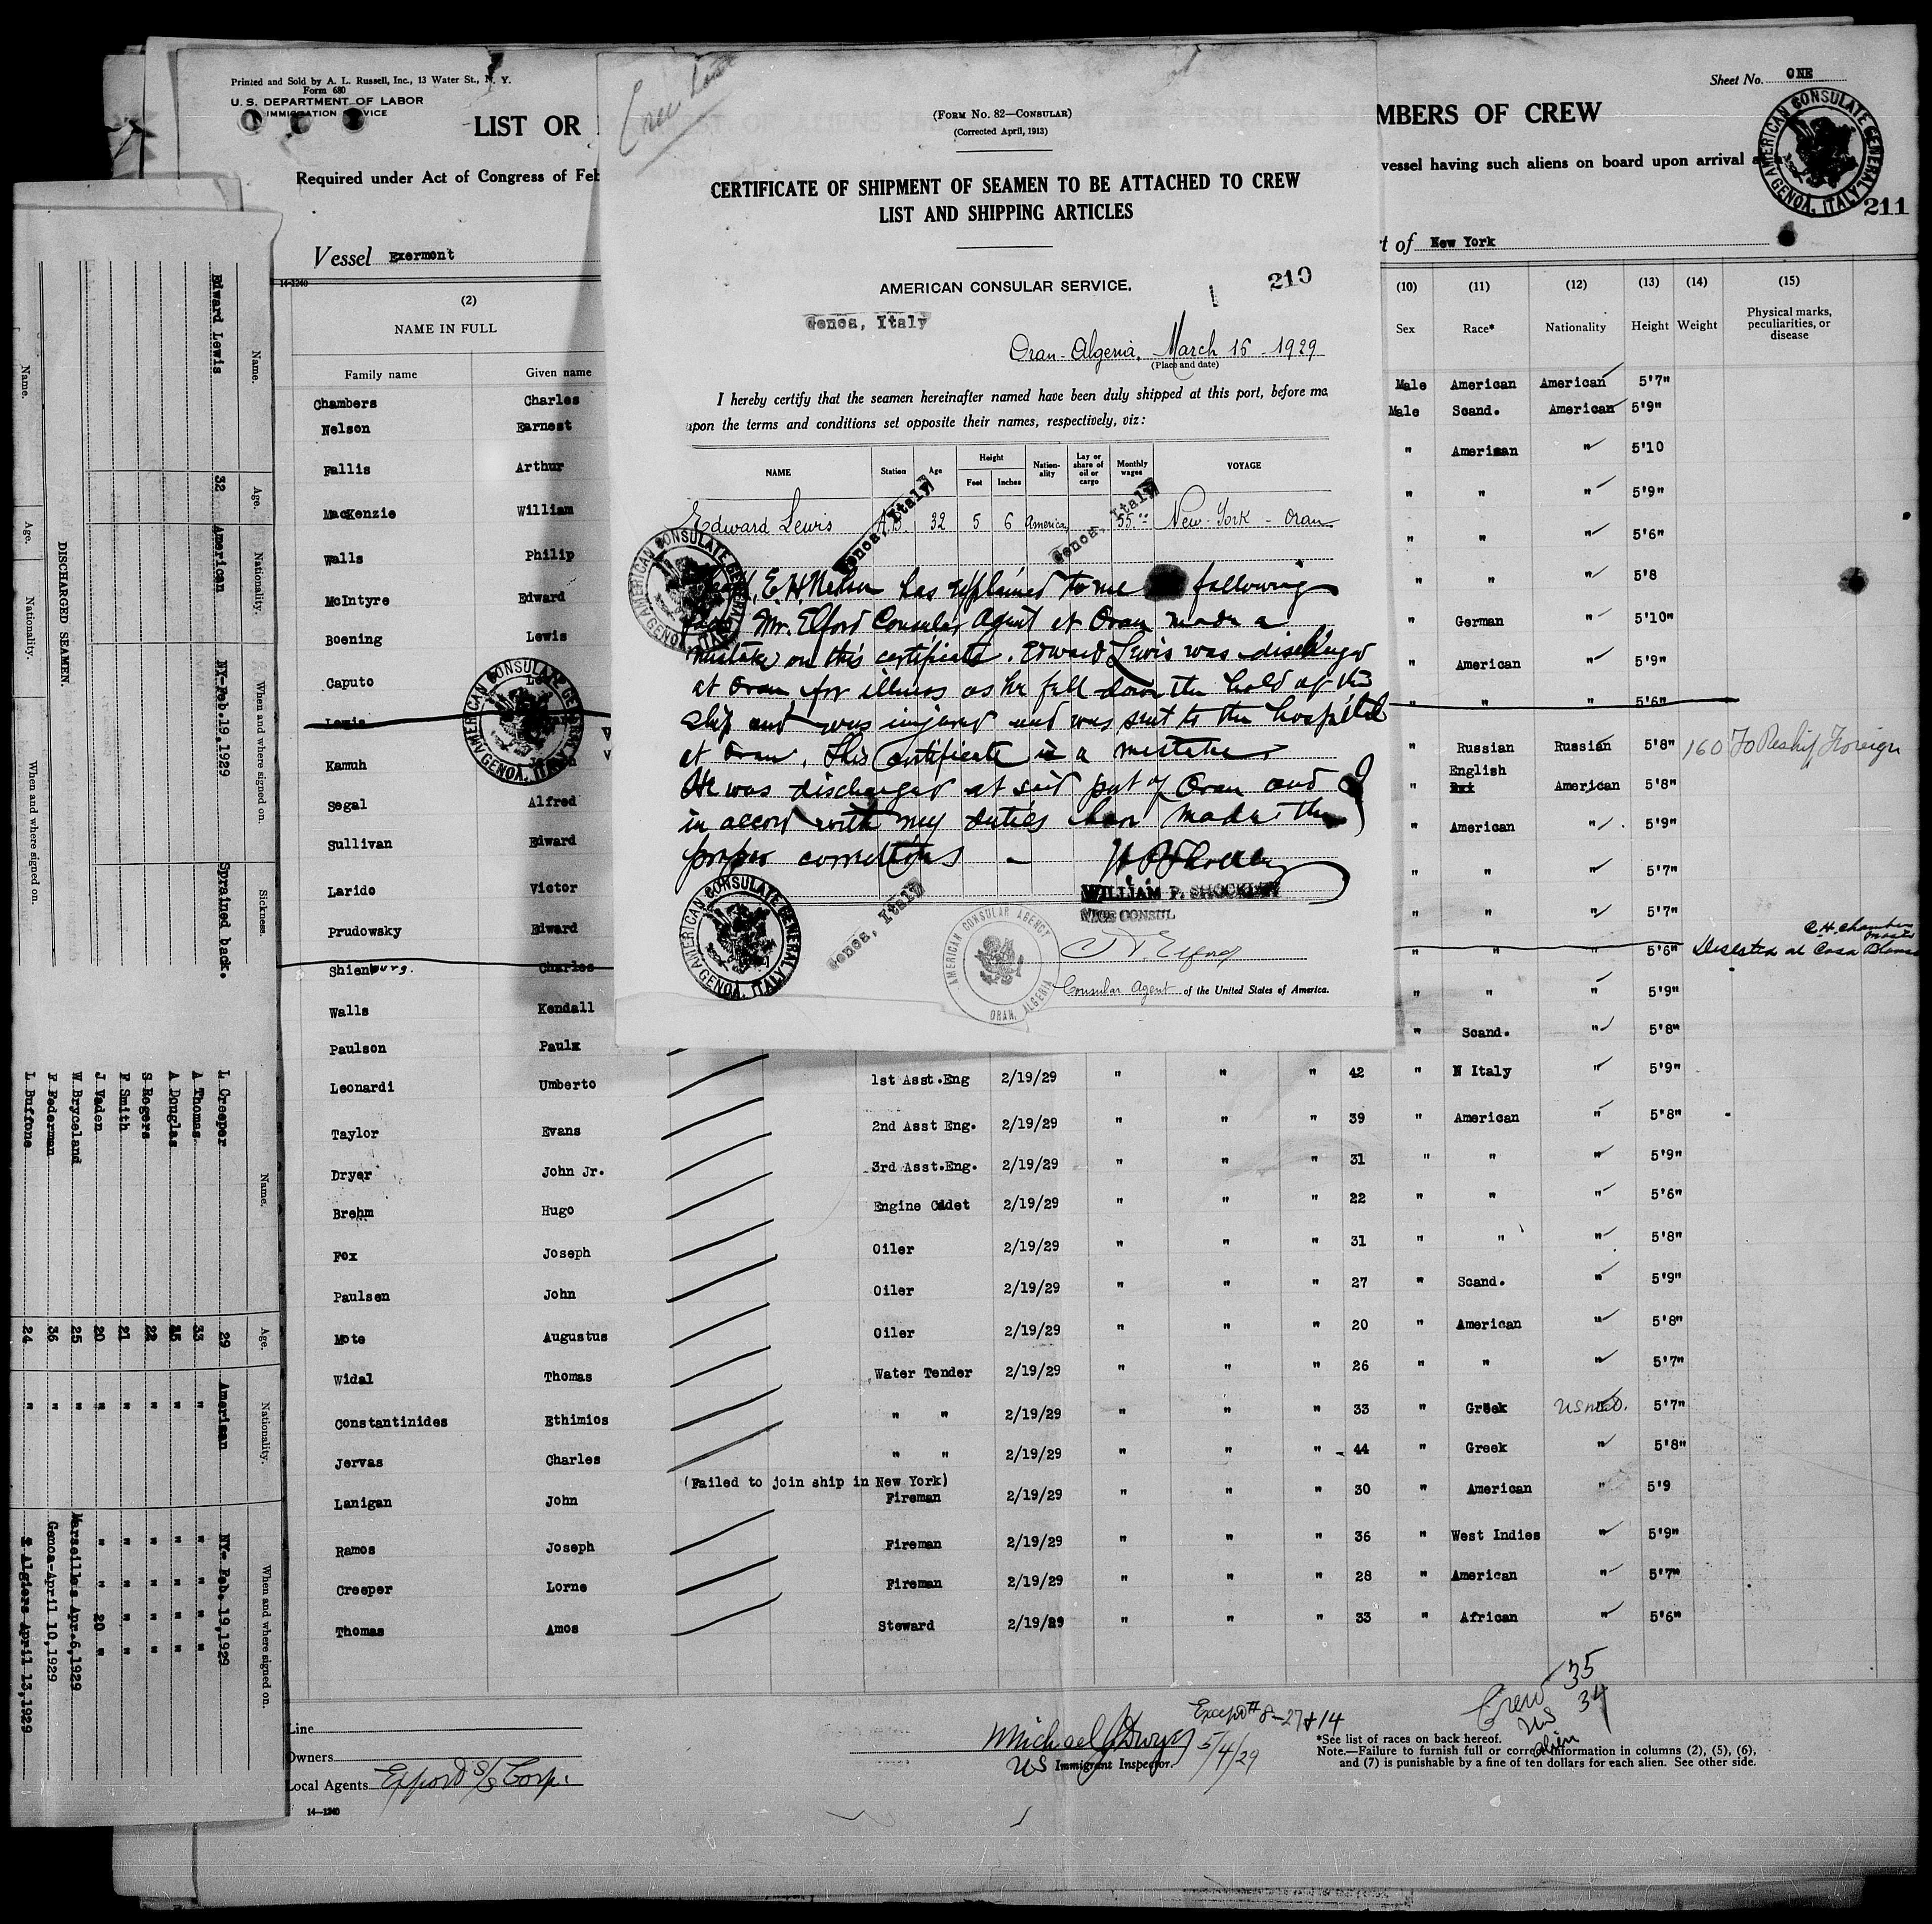 Printed and Sold by A. L. Russell, Inc., 13 Water St., N. Y.
Form 680
U. S. DEPARTMENT OF LABOR
IMMIGRATION SERVICE
LIST OR
MBERS OF CREW
Sheet No. ONE
Required under Act of Congress of Feb
vessel having such aliens on board upon arrival a
AMERICAN CONSULATE GENERAL GENOA, ITALY
211
Vessel Exermont
t of New York
14-1240
(2)
NAME IN FULL
Family name Given name
(10) (11) (12) (13) (14) (15)
Sex Race* Nationality Height Weight Physical marks, peculiarities, or disease
Crew List
(FORM NO. 82—CONSULAR)
(Corrected April, 1913)
CERTIFICATE OF SHIPMENT OF SEAMEN TO BE ATTACHED TO CREW
LIST AND SHIPPING ARTICLES
AMERICAN CONSULAR SERVICE,
210
Genoa, Italy
Oran-Algeria, March 16 - 1929
(Place and date)
I hereby certify that the seamen hereinafter named have been duly shipped at this port, before me
upon the terms and conditions set opposite their names, respectively, viz:
NAME Station Age Height Feet Inches Nation-ality Lay or share of oil or cargo Monthly wages VOYAGE
Edward Lewis A.B. 32 5 6 America 55.00 New-York - Oran
Genoa, Italy
Genoa, Italy
E. H. Nelson has explained to me following
Mr. Elford Consular Agent at Oran made a
mistake on this certificate. Edward Lewis was discharged
at Oran for illness as he fell down the hold of the
ship and was injured and was sent to the hospital
at Oran. This Certificate is a mistake.
He was discharged at said port of Oran and
in accord with my duties have made the
proper corrections -
WILLIAM P. SHOCKLEY
VICE CONSUL
Genoa, Italy
AMERICAN CONSULATE GENERAL GENOA, ITALY
AMERICAN CONSULAR AGENCY ORAN, ALGERIA
Elford
Consular Agent of the United States of America.
Chambers Charles Male American American 5'7"
Nelson Earnest Male Scand. American 5'9"
Fallis Arthur " American " 5'10
MacKenzie William " " " 5'9"
Walls Philip " " " 5'6"
McIntyre Edward " " " 5'8
Boening Lewis " German " 5'10"
Caputo " American " 5'9"
Lewis " " " 5'6"
Kamuh " Russian Russian 5'8" 160 To Reship Foreign
Segal Alfred " English American 5'8"
Sullivan Edward " American " 5'9"
Larido Victor " " " 5'7"
Prudowsky Edward " " " 5'7"
Shienburg. Charles " " " 5'6" Deserted at Casa Blanca
C. H. Chambers Master
Walls Kendall " " " 5'9"
Paulson Paulx " Scand. " 5'8"
Leonardi Umberto 1st Asst.Eng 2/19/29 " " " 42 " N Italy " 5'9"
Taylor Evans 2nd Asst Eng. 2/19/29 " " " 39 " American " 5'8"
Dryer John Jr. 3rd Asst.Eng. 2/19/29 " " " 31 " " " 5'9"
Brehm Hugo Engine Cadet 2/19/29 " " " 22 " " " 5'6"
Fox Joseph Oiler 2/19/29 " " " 31 " " " 5'8"
Paulsen John Oiler 2/19/29 " " " 27 " Scand. " 5'9"
Mote Augustus Oiler 2/19/29 " " " 20 " American " 5'8"
Widal Thomas Water Tender 2/19/29 " " " 26 " " " 5'7"
Constantinides Ethimios " " 2/19/29 " " " 33 " Greek " 5'7"
Jervas Charles " " 2/19/29 " " " 44 " Greek " 5'8"
(Failed to join ship in New York)
Lanigan John Fireman 2/19/29 " " " 30 " American " 5'9
Ramos Joseph Fireman 2/19/29 " " " 36 " West Indies " 5'9"
Creeper Lorne Fireman 2/19/29 " " " 28 " American " 5'7"
Thomas Amos Steward 2/19/29 " " " 33 " African " 5'6"
Line
Owners
Local Agents Export S/S Corp.
14—1240
Michael J Dwyer 5/4/29
US Immigrant Inspector.
Except # 8-27 & 14
Crew 35
US 34
alien 1
*See list of races on back hereof.
Note.—Failure to furnish full or correct information in columns (2), (5), (6),
and (7) is punishable by a fine of ten dollars for each alien. See other side.
DISCHARGED SEAMEN.
Name. Age. Nationality. When and where signed on. Sickness.
Edward Lewis 32 American NY-Feb.19,1929 Sprained back.
Name. Age. Nationality. When and where signed on.
Name. Age. Nationality. When and where signed on.
L Creeper 29 American NY- Feb. 19,1929
A Thomas 33 " " " "
A Douglas 35 " " " "
S Rogers 22 " " " "
F Smith 21 " " " "
J Vaden 20 " " " 20 "
W Bryceland 25 " Marseilles Apr.6,1929
F Federman 36 " Genoa-April 10,1929
L Buffone 24 " Algiers April 13,1929